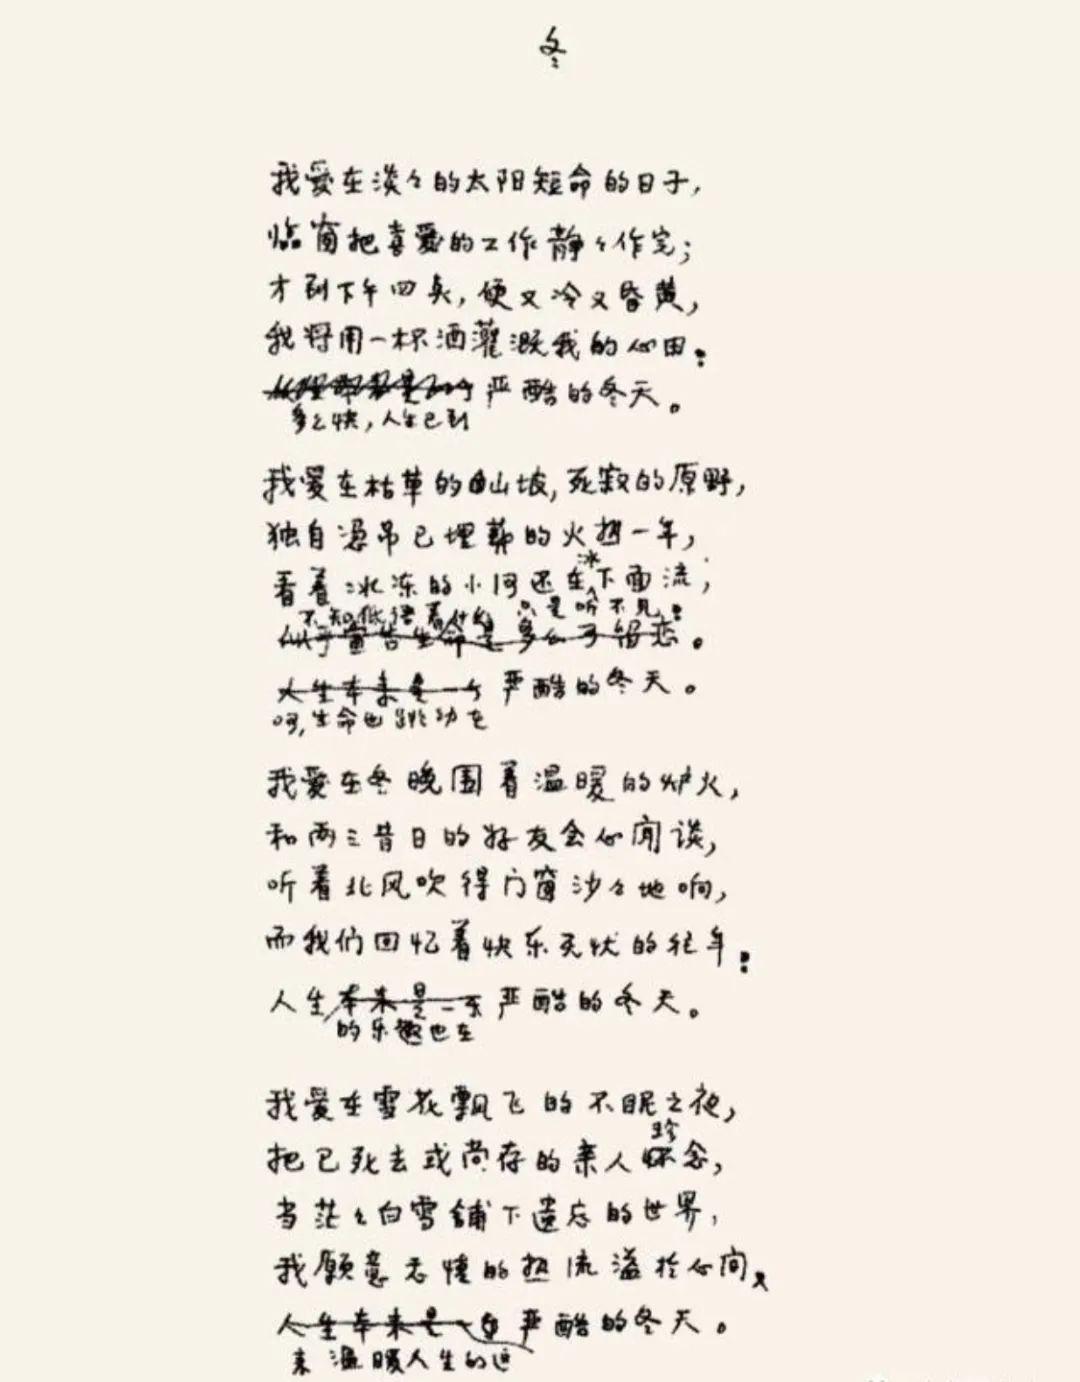 冬
我爱在淡々的太阳短命的日子，
临窗把喜爱的工作静々作完；
才到下午四点，便又冷又昏黄，
我将用一杯酒灌溉我的心田：
严酷的冬天。
多么快，人生已到
我爱在枯草的山坡，死寂的原野，
独自凭吊已埋葬的火热一年，
看着冰冻的小河还在冰下面流，
不知低语着什么 只是听不见：
似乎宣告生命是多么可留恋。
人生本来是一个严酷的冬天。
呵，生命也跳动在
我爱在冬晚围着温暖的炉火，
和两三昔日的好友会心闲谈，
听着北风吹得门窗沙々地响，
而我们回忆着快乐无忧的往年：
人生本来是一个严酷的冬天。
的乐趣也在
我爱在雪花飘飞的不眠之夜，
珍
把已死去或尚存的亲人怀念，
当茫々白雪铺下遗忘的世界，
我愿意感情的热流溢于心间，
人生本来是一个严酷的冬天。
来温暖人生的这